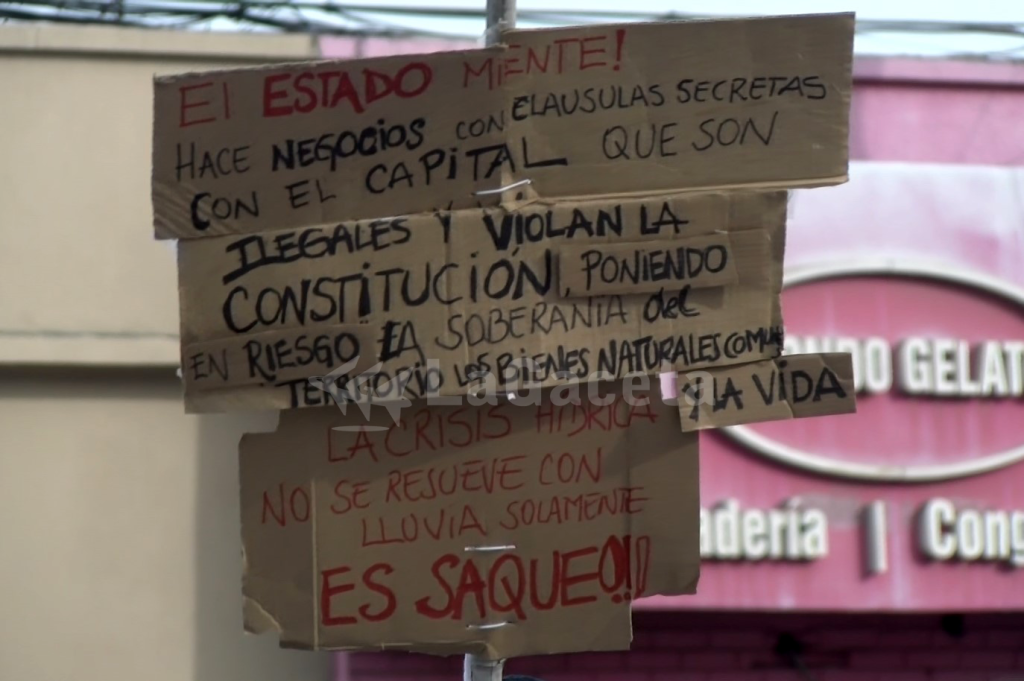 El ESTADO MiENTE!
HACE NEGOCiOS CON CLAUSULAS SECRETAS
CON EL CAPiTAL QUE SON
ILEGALES Y VIOLAN LA
CONSTiTUCIÓN, PONIENDO
EN RIESGO LA SOBERANÍA del
TERRITORIO LOS BIENES NATURALES COMUNES
Y LA VIDA
LA CRISIS HÍDRICA
NO SE RESUEVE CON
LLUVIA SOLAMENTE
ES SAQUEO!!!
LaGaceta
NDO GELAT
adería | Cong